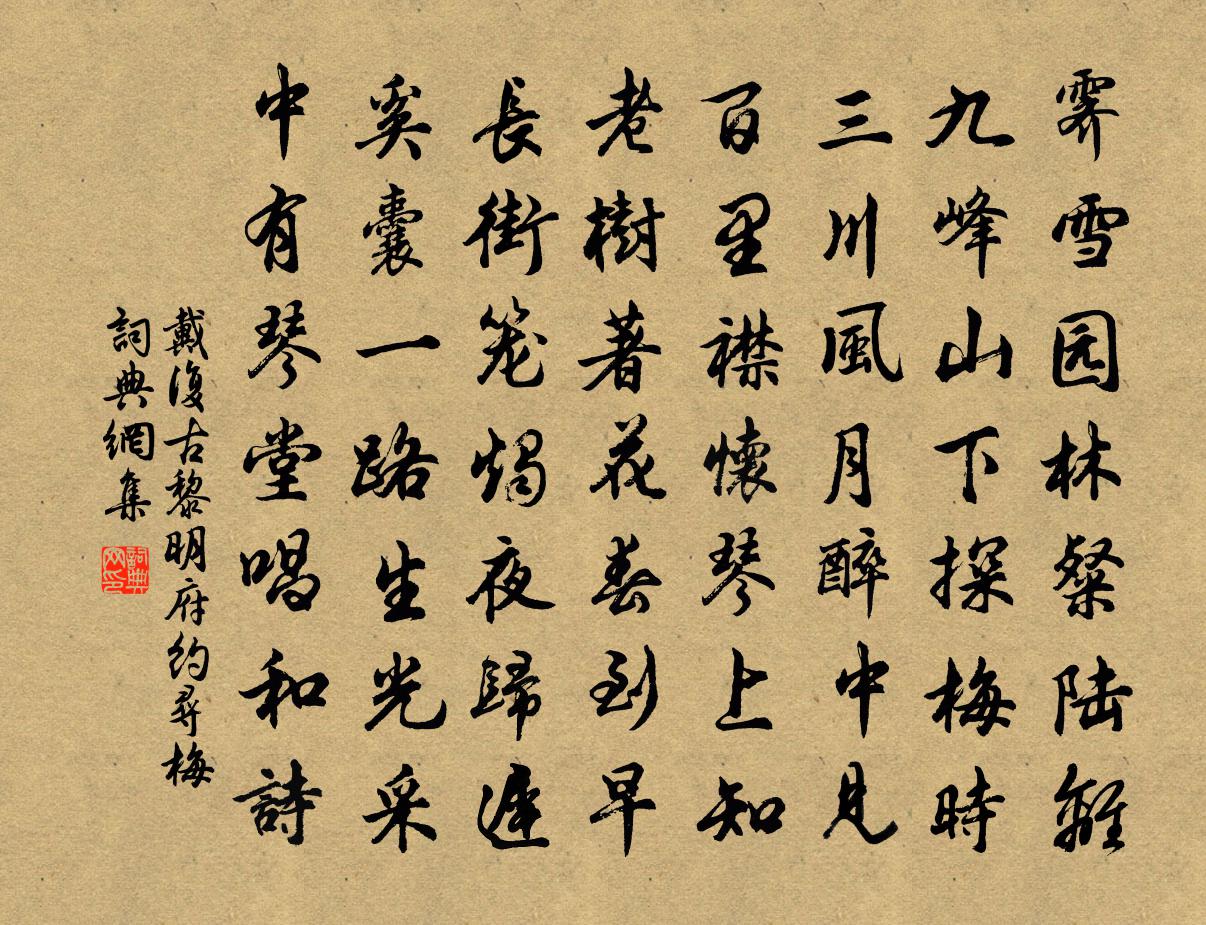 霽雪园林粲陆離
九峰山下探梅時
三川風月醉中見
百里襟懷琴上知
老樹著花春到早
長街笼燭夜歸遲
奚囊一路生光采
中有琴堂唱和詩
戴復古黎明府約尋梅
詞典網集
詞典
网印